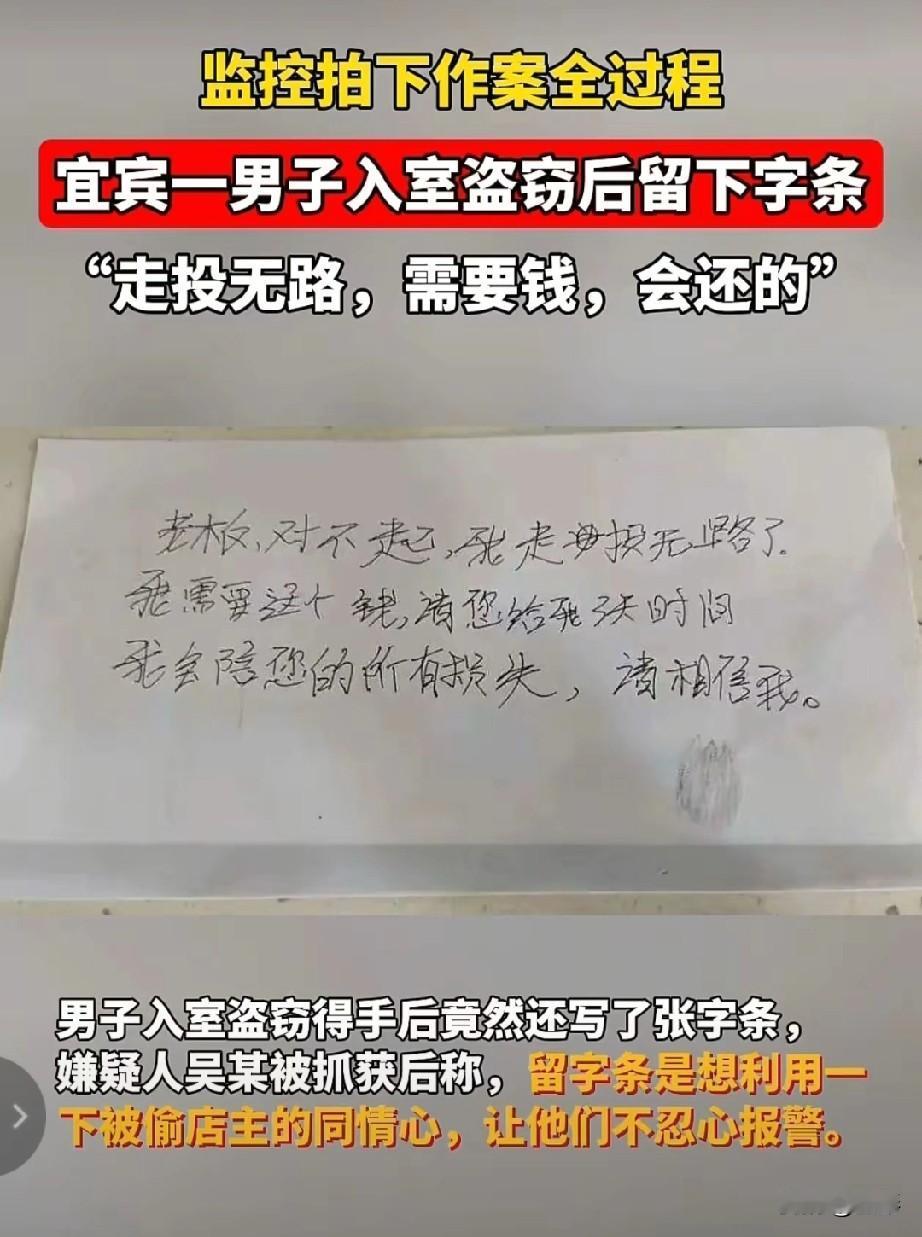 监控拍下作案全过程
宜宾一男子入室盗窃后留下字条
“走投无路，需要钱，会还的”
老板，对不起，我走投无路了.
我需要这个钱，请您给我3天时间
我会陪您的所有损失，请相信我。
男子入室盗窃得手后竟然还写了张字条，
嫌疑人吴某被抓获后称，留字条是想利用一
下被偷店主的同情心，让他们不忍心报警。